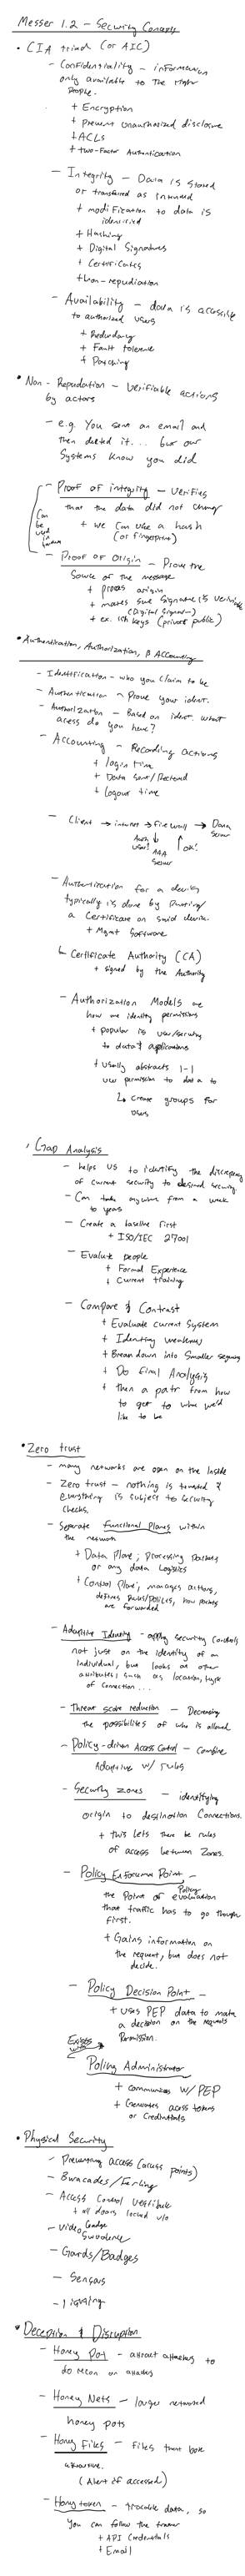 Messer 1.2 - Security Concepts
• CIA triad (or AIC)
- Confidentiality - information
only available to the right
people.
+ Encryption
+ prevent unauthorized disclosure
+ ACLs
+ Two-Factor Authentication
- Integrity - Data is stored
or transferred as intended
+ modification to data is
identified
+ Hashing
+ Digital Signatures
+ Certificates
+ Non-repudiation
- Availability - data is accessible
to authorized users
+ Redundancy
+ Fault tolerance
+ Patching
• Non-Repudation - Verifiable actions
by actors
- e.g. You sent an email and
then deleted it... but our
systems know you did
- Proof of integrity - verifies
that the data did not change
+ we can use a hash
(or fingerprint)
Can
be
used
in
- Proof of Origin - Prove the
source of the message
+ proves origin
+ makes sure signature is verifiable
(Digital Signature)
+ ex. ssh keys (private public)
• Authentication, Authorization, & Accounting
- Identification - who you claim to be
- Authentication - Prove your ident.
- Authorization - Based on ident. what
access do you have?
- Accounting - Recording actions
+ login time
+ Data Sent/Received
+ Logout time
- Client → internet → Firewall → Data
Server
Auth
user?
OK!
AAA
Server
- Authentication for a device
typically is done by putting
a certificate on said device
+ Mgmt Software
↳ Certificate Authority (CA)
+ signed by the Authority
- Authorization Models are
how we identify permissions
+ popular is user/services
to data & applications
+ usually abstracts 1-1
user permission to data to
↳ create groups for
users
• Gap Analysis
- helps us to identify the discrepancy
of current security to desired security.
- Can take anywhere from a week
to years
- Create a baseline first
+ ISO/IEC 27001
- Evaluate people
+ Formal Experience
+ Current training
- Compare & Contrast
+ Evaluate current system
+ Identify weaknesses
+ Break down into smaller segments
+ Do final Analysis
+ then a path from how
to get to where we'd
like to be
• Zero trust
- many networks are open on the inside
- Zero trust - nothing is trusted &
everything is subject to security
checks.
- Separate functional Planes within
the network
+ Data Plane; processing packets
or any data logistics
+ Control Plane; manages actions,
defines Rules/policies, how packets
are forwarded
- Adaptive Identity - apply security controls
not just on the identity of an
individual, but looks at other
attributes; such as location, type
of connection...
- Threat score reduction - Decreasing
the possibilities of who is allowed
- Policy-driven Access Control - combine
Adaptive w/ rules
- Security zones - identifying
origin to destination connections.
+ this lets there be rules
of access between zones.
- Policy Enforcement Point -
the Point of Policy evaluation
that traffic has to go through
first.
+ Gains information on
the request, but does not
decide.
- Policy Decision Point -
+ uses PEP data to make
a decision on the requests
Permission.
Exists
with
Policy Administrator
+ communicates w/ PEP
+ Generates access tokens
or credentials
• Physical Security
- Preventing access (access points)
- Baracades/Fencing
- Access Control Vestibule
+ all doors locked w/o
badge
- Video Surveillance
- Gards/Badges
- Sensors
- Lighting
• Deception & Disruption
- Honey Pot - attract attackers to
do recon or attacks
- Honey Nets - larger networked
honey pots
- Honey Files - files that
(Alert if accessed)
- Honeytoken - tracable data, so
you can follow the
+ API Credentials
+ Email